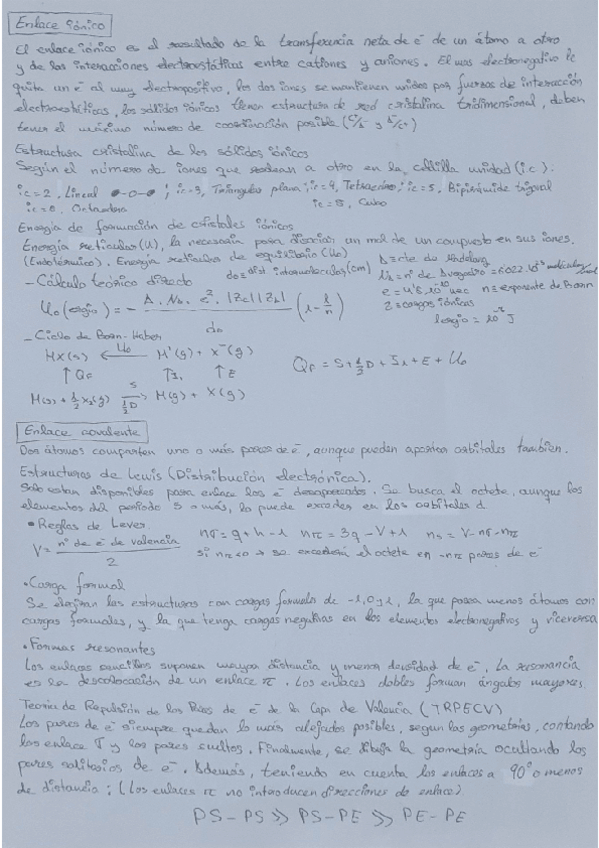 Enlace iónico
El enlace iónico es el resultado de la transferencia neta de e⁻ de un átomo a otro
y de las interacciones electrostáticas entre cationes y aniones. El mas electronegativo le
quita un e⁻ al muy electropositivo, los dos iones se mantienen unidos por fuerzas de interacción
electroestáticas, los sólidos iónicos tienen estructura de red cristalina tridimensional, deben
tener el máximo número de coordinación posible (C/A y A/C+)
Estructura cristalina de los sólidos iónicos
Según el número de iones que rodean a otro en la celdilla unidad (i.c).
ic=2, Lineal ; ic=3, Triangular plana; ic=4, Tetraedro; ic=5, Bipirámide trigonal
ic=6, Octaedro ic=8, Cubo
Energía de formación de cristales iónicos
Energía reticular (U), la necesaria para disociar un mol de un compuesto en sus iones.
(Endotérmico). Energía reticular de equilibrio (U₀) A=cte de Madelung
– Cálculo teórico directo d₀=dist internucleares (cm) = nº de Avogadro = 6,022.10²³
U₀ (ergio) = – A. . e². |Zc||Za| / d₀ (1 – 1/n) e = 4'8.10⁻¹⁰ uec n=exponente de Born
Z=cargas iónicas
1ergio = 10⁻⁷ J
– Ciclo de Born-Haber
MX(s) ←U₀ M⁺(g) + X⁻(g) QF = S + ½D + I₁ + E + U₀
↑ QF ↑ I₁ ↑ E
M(s) + ½ X₂(g) S→ ½D M(g) + X(g)
Enlace covalente
Dos átomos comparten uno o más pares de e⁻, aunque pueden aportar orbitales también.
Estructuras de Lewis (Distribución electrónica).
Solo estan disponibles para enlace los e⁻ desapareados. Se busca el octete, aunque los
elementos del periodo 3 a más, lo puede exceder en los orbitales d.
• Reglas de Lever
V = nº de e⁻ de valencia / 2 nσ = q + h – 1 nπ = 3q – V + 1 ns = V – nσ – nπ
si nπ<0 → se excederá el octete en –nπ pares de e⁻
• Carga formal
Se elegiran las estructuras con cargas formales de –1, 0 y 1, la que posea menos átomos con
cargas formales, y la que tenga cargas negativas en los elementos electronegativos y viceversa
• Formas resonantes
Los enlaces sencillos suponen mayor distancia y menor densidad de e⁻. La resonancia
es la deslocación de un enlace π. Los enlaces dobles forman ángulos mayores.
Teoría de Repulsión de los Pares de e⁻ de la Capa de Valencia (TRPECV)
Los pares de e⁻ siempre quedan lo mas alejados posibles, según las geometrías, contando
los enlace σ y los pares sueltos. Finalmente, se dibuja la geometría ocultando los
pares solitarios de e⁻. Además, teniendo en cuenta los enlaces a 90° o menos
de distancia: (Los enlaces π no introducen direcciones de enlace).
PS – PS >> PS – PE >> PE – PE